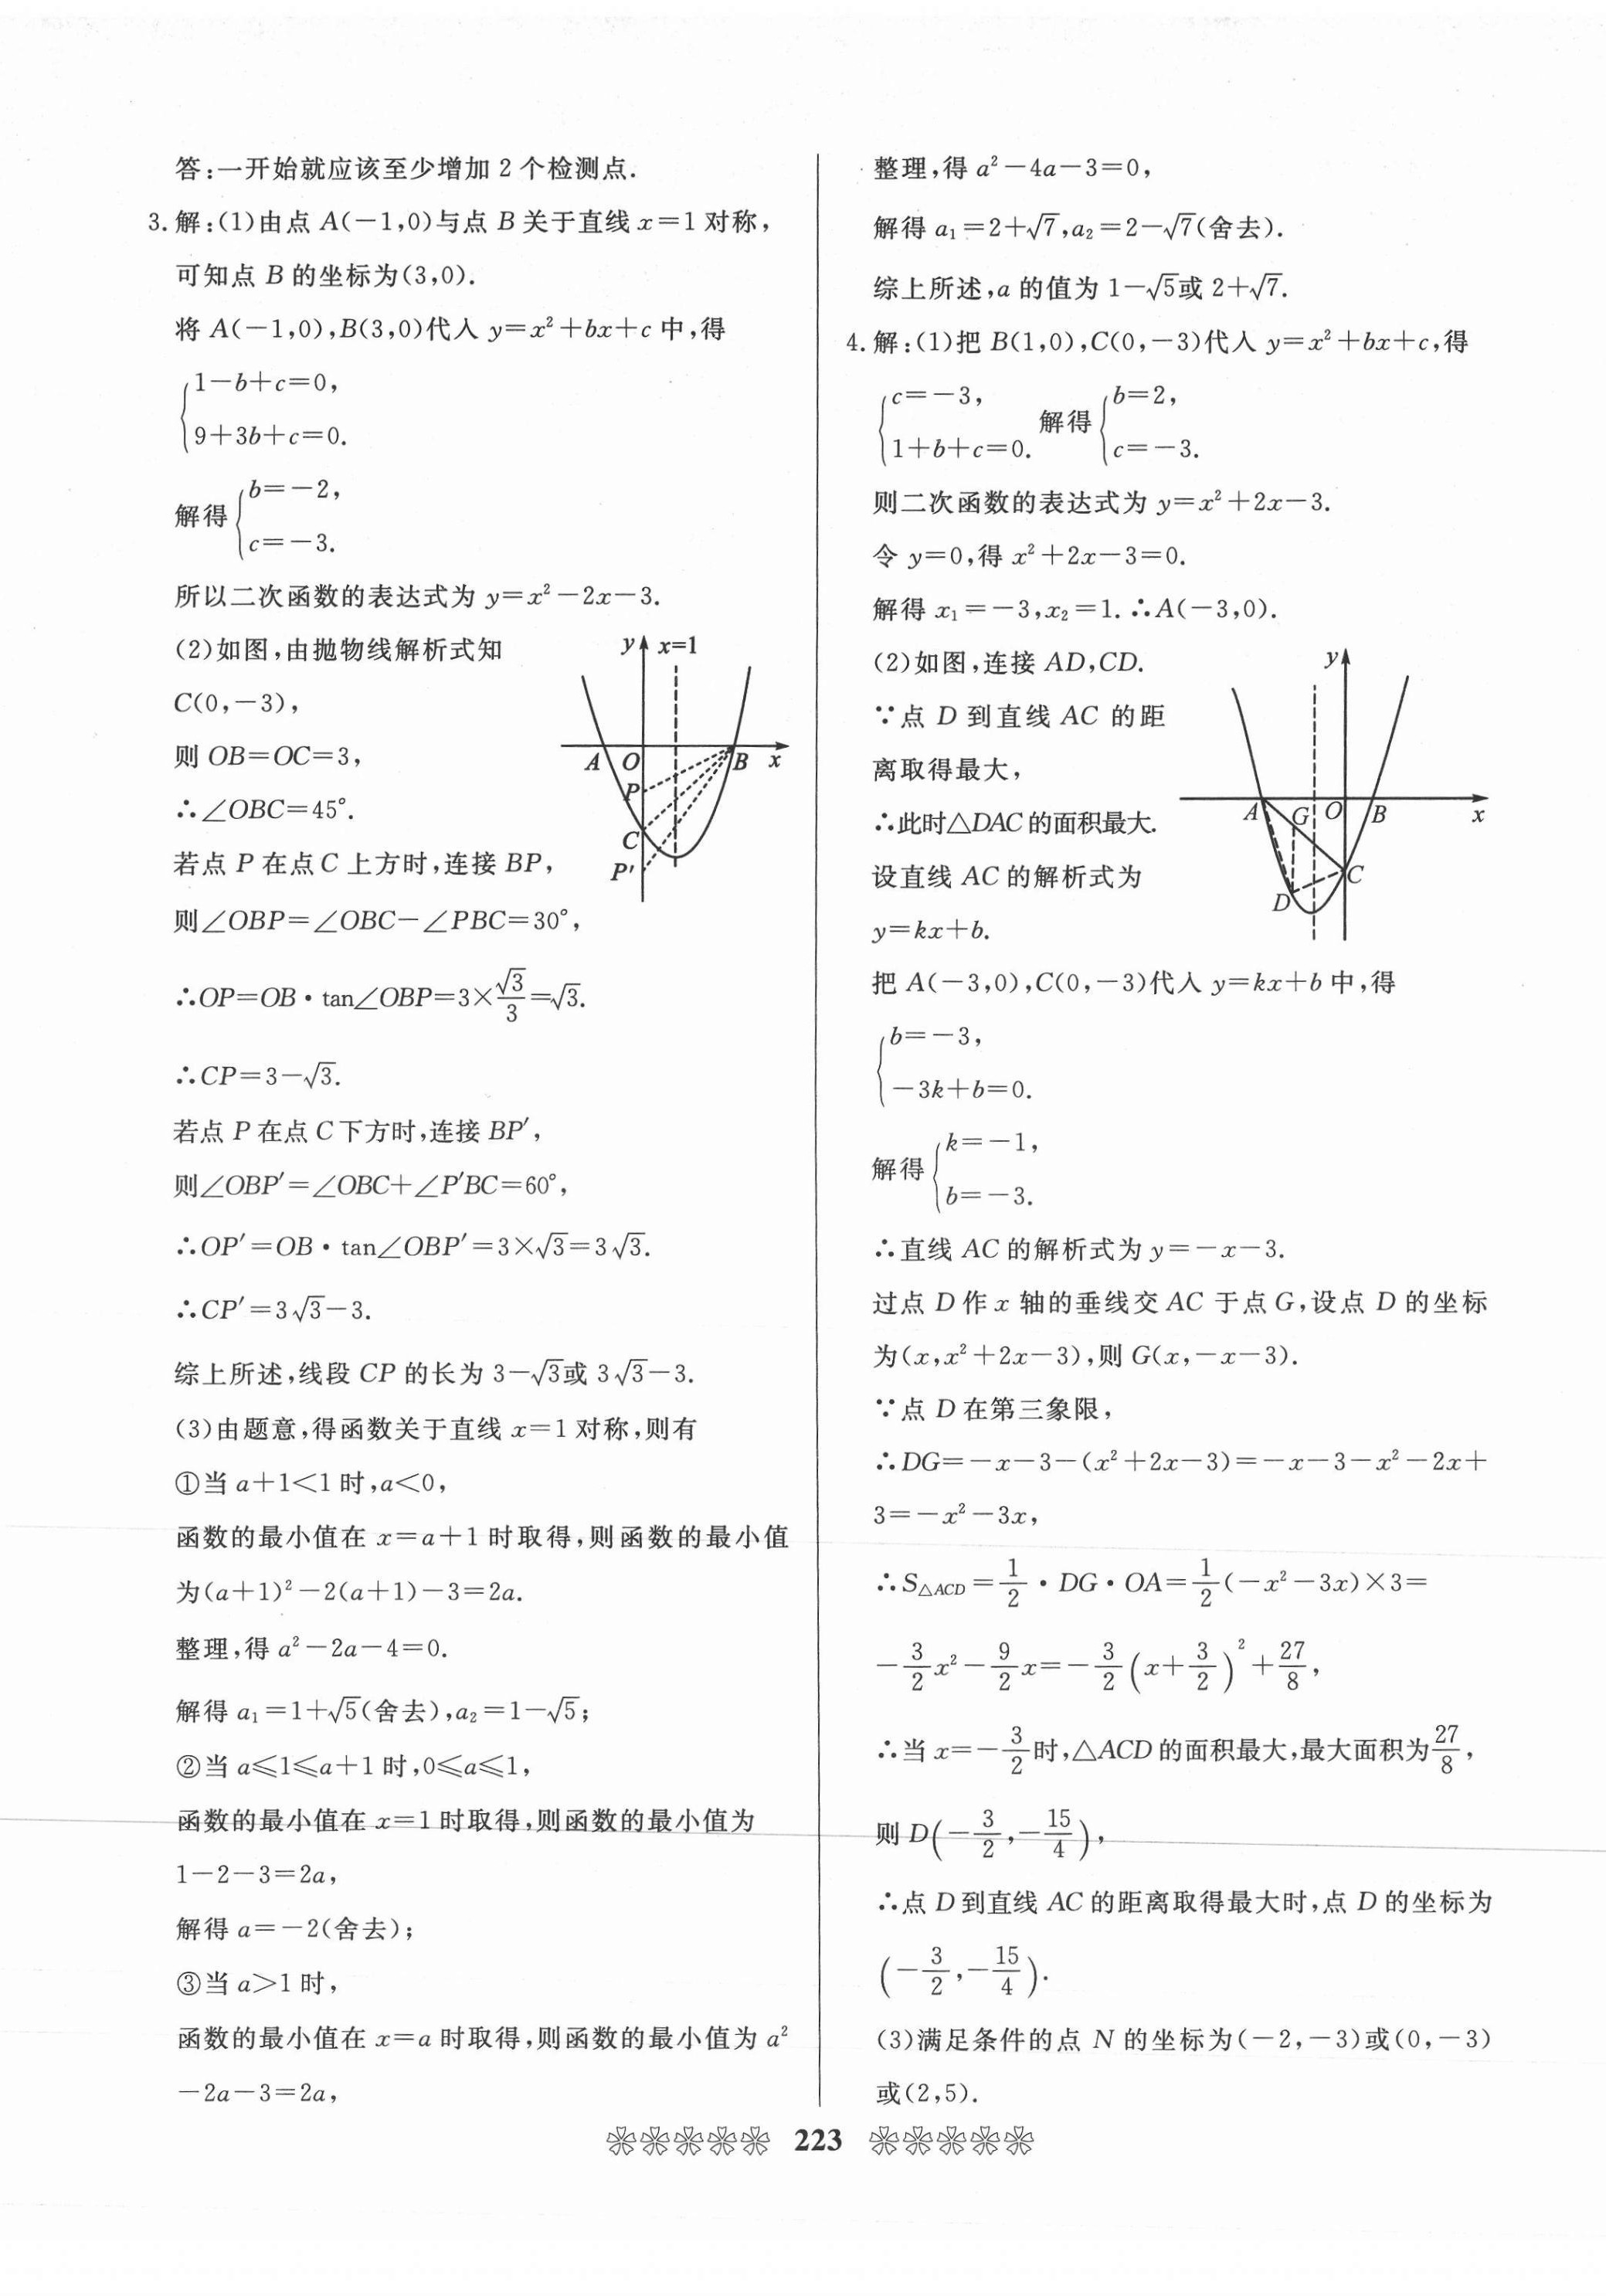 答:一开始就应该至少增加 2 个检测点.
3. 解:(1)由点 A(-1,0)与点 B 关于直线 x=1 对称,
可知点 B 的坐标为(3,0).
将 A(-1,0),B(3,0)代入 y=x²+bx+c 中,得
{1-b+c=0,
9+3b+c=0.
解得{b=-2,
c=-3.
所以二次函数的表达式为 y=x²-2x-3.
(2)如图,由抛物线解析式知
C(0,-3),
则 OB=OC=3,
∴∠OBC=45°.
若点 P 在点 C 上方时,连接 BP,
y x=1
A O B x
P
C
P′
则∠OBP=∠OBC-∠PBC=30°,
∴OP=OB·tan∠OBP=3×√3/3=√3.
∴CP=3-√3.
若点 P 在点 C 下方时,连接 BP′,
则∠OBP′=∠OBC+∠P′BC=60°,
∴OP′=OB·tan∠OBP′=3×√3=3√3.
∴CP′=3√3-3.
综上所述,线段 CP 的长为 3-√3或 3√3-3.
(3)由题意,得函数关于直线 x=1 对称,则有
①当 a+1<1 时,a<0,
函数的最小值在 x=a+1 时取得,则函数的最小值
为(a+1)²-2(a+1)-3=2a.
整理,得 a²-2a-4=0.
解得 a₁=1+√5(舍去),a₂=1-√5;
②当 a≤1≤a+1 时,0≤a≤1,
函数的最小值在 x=1 时取得,则函数的最小值为
1-2-3=2a,
解得 a=-2(舍去);
③当 a>1 时,
函数的最小值在 x=a 时取得,则函数的最小值为 a²
-2a-3=2a,
整理,得 a²-4a-3=0,
解得 a₁=2+√7,a₂=2-√7(舍去).
综上所述,a 的值为 1-√5或 2+√7.
4. 解:(1)把 B(1,0),C(0,-3)代入 y=x²+bx+c,得
{c=-3,
1+b+c=0. 解得{b=2,
c=-3.
则二次函数的表达式为 y=x²+2x-3.
令 y=0,得 x²+2x-3=0.
解得 x₁=-3,x₂=1.∴A(-3,0).
(2)如图,连接 AD,CD.
∵点 D 到直线 AC 的距
离取得最大,
∴此时△DAC 的面积最大.
设直线 AC 的解析式为
y=kx+b.
y
A G O B x
C
D
把 A(-3,0),C(0,-3)代入 y=kx+b 中,得
{b=-3,
-3k+b=0.
解得{k=-1,
b=-3.
∴直线 AC 的解析式为 y=-x-3.
过点 D 作 x 轴的垂线交 AC 于点 G,设点 D 的坐标
为(x,x²+2x-3),则 G(x,-x-3).
∵点 D 在第三象限,
∴DG=-x-3-(x²+2x-3)=-x-3-x²-2x+
3=-x²-3x,
∴S△ACD=1/2·DG·OA=1/2(-x²-3x)×3=
-3/2x²-9/2x=-3/2(x+3/2)²+27/8,
∴当 x=-3/2时,△ACD 的面积最大,最大面积为27/8,
则 D(-3/2,-15/4),
∴点 D 到直线 AC 的距离取得最大时,点 D 的坐标为
(-3/2,-15/4).
(3)满足条件的点 N 的坐标为(-2,-3)或(0,-3)
或(2,5).
223